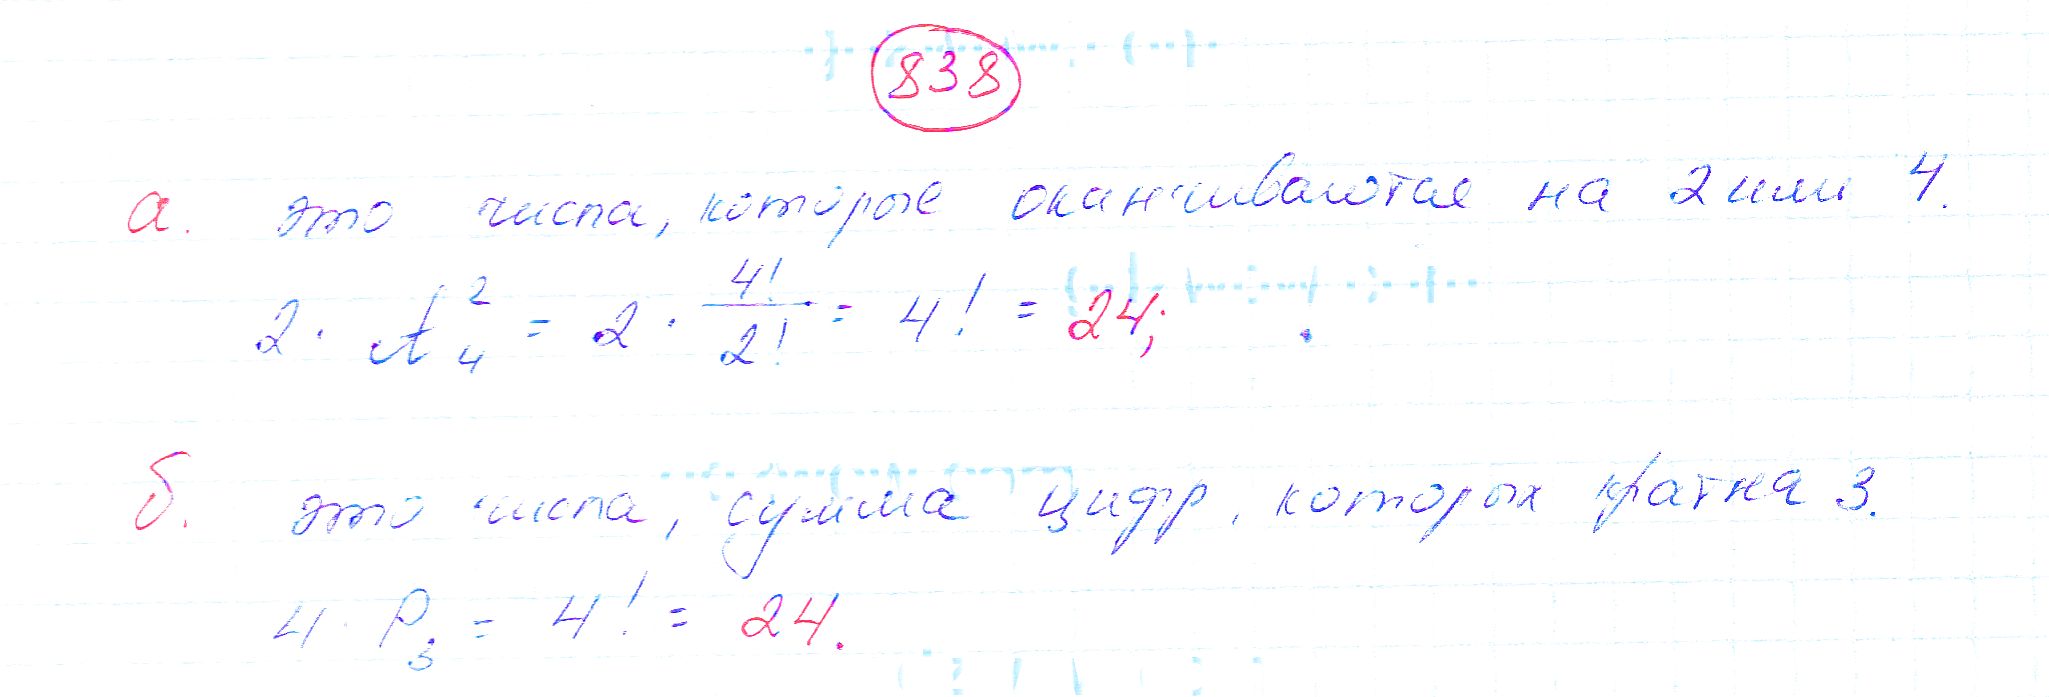 838
а. это числа, которые оканчиваются на 2 или 4.
2 · A₄² = 2 · 4!/2! = 4! = 24;
б. это числа, сумма цифр, которых кратна 3.
4 · P₃ = 4! = 24.